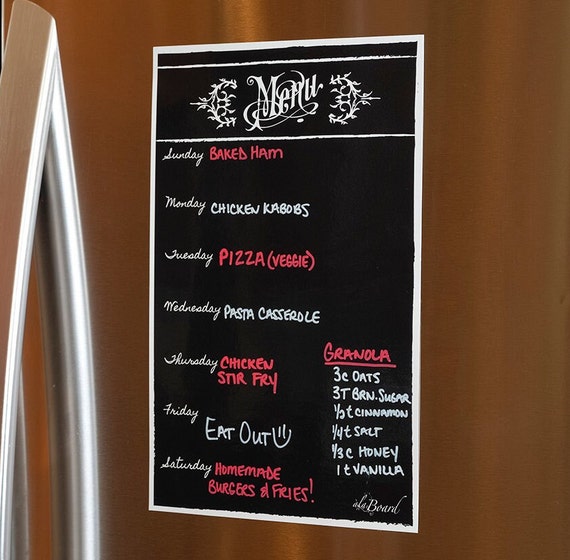 Menu
Sunday BAKED HAM
Monday CHICKEN KABOBS
Tuesday PIZZA (VEGGIE)
Wednesday PASTA CASSEROLE
Thursday CHICKEN
STIR FRY
Friday EAT OUT
Saturday HOMEMADE
BURGERS & FRIES!
GRANOLA
3c OATS
3T BRN. SUGAR
1/2 t CINNAMON
1/4 t SALT
1/3 c HONEY
1 t VANILLA
àlaBoard